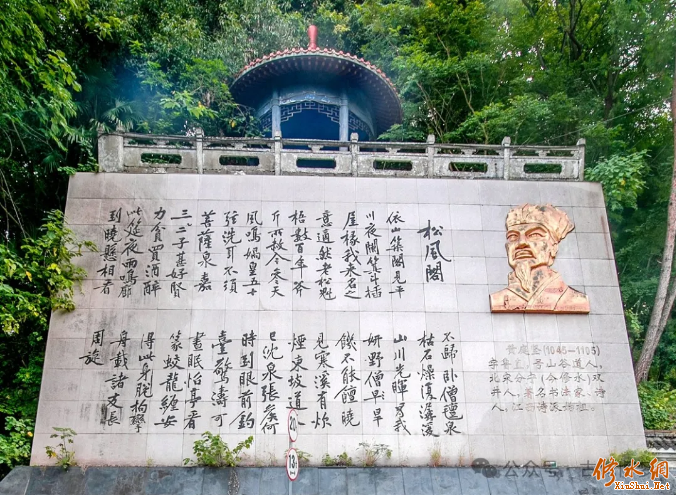 松風閣
依山築閣見平
川夜闌箕斗插
屋椽我來名之
意適然老松魁
梧數百年斧
斤所赦今參天
風鳴媧皇五十
弦洗耳不須
菩薩泉嘉
三二子甚好賢
力貧買酒醉
此筵夜雨鳴廊
到曉懸相看
不歸臥僧氊泉
枯石燥復潺湲
山川光暉為我
妍野僧旱
饑不能饘曉
見寒溪有炊
煙東坡道人
已沈泉張侯何
時到眼前釣
臺驚濤可
晝眠怡亭看
篆蛟龍纏安
得此身脫拘攣
舟載諸友長
周旋
黄庭坚(1045-1105)
字鲁直,号山谷道人,
北宋分宁(今修水)双
井人,著名书法家、诗
人,江西诗派始祖。
20
公众号
修水网
XiuShui.Net